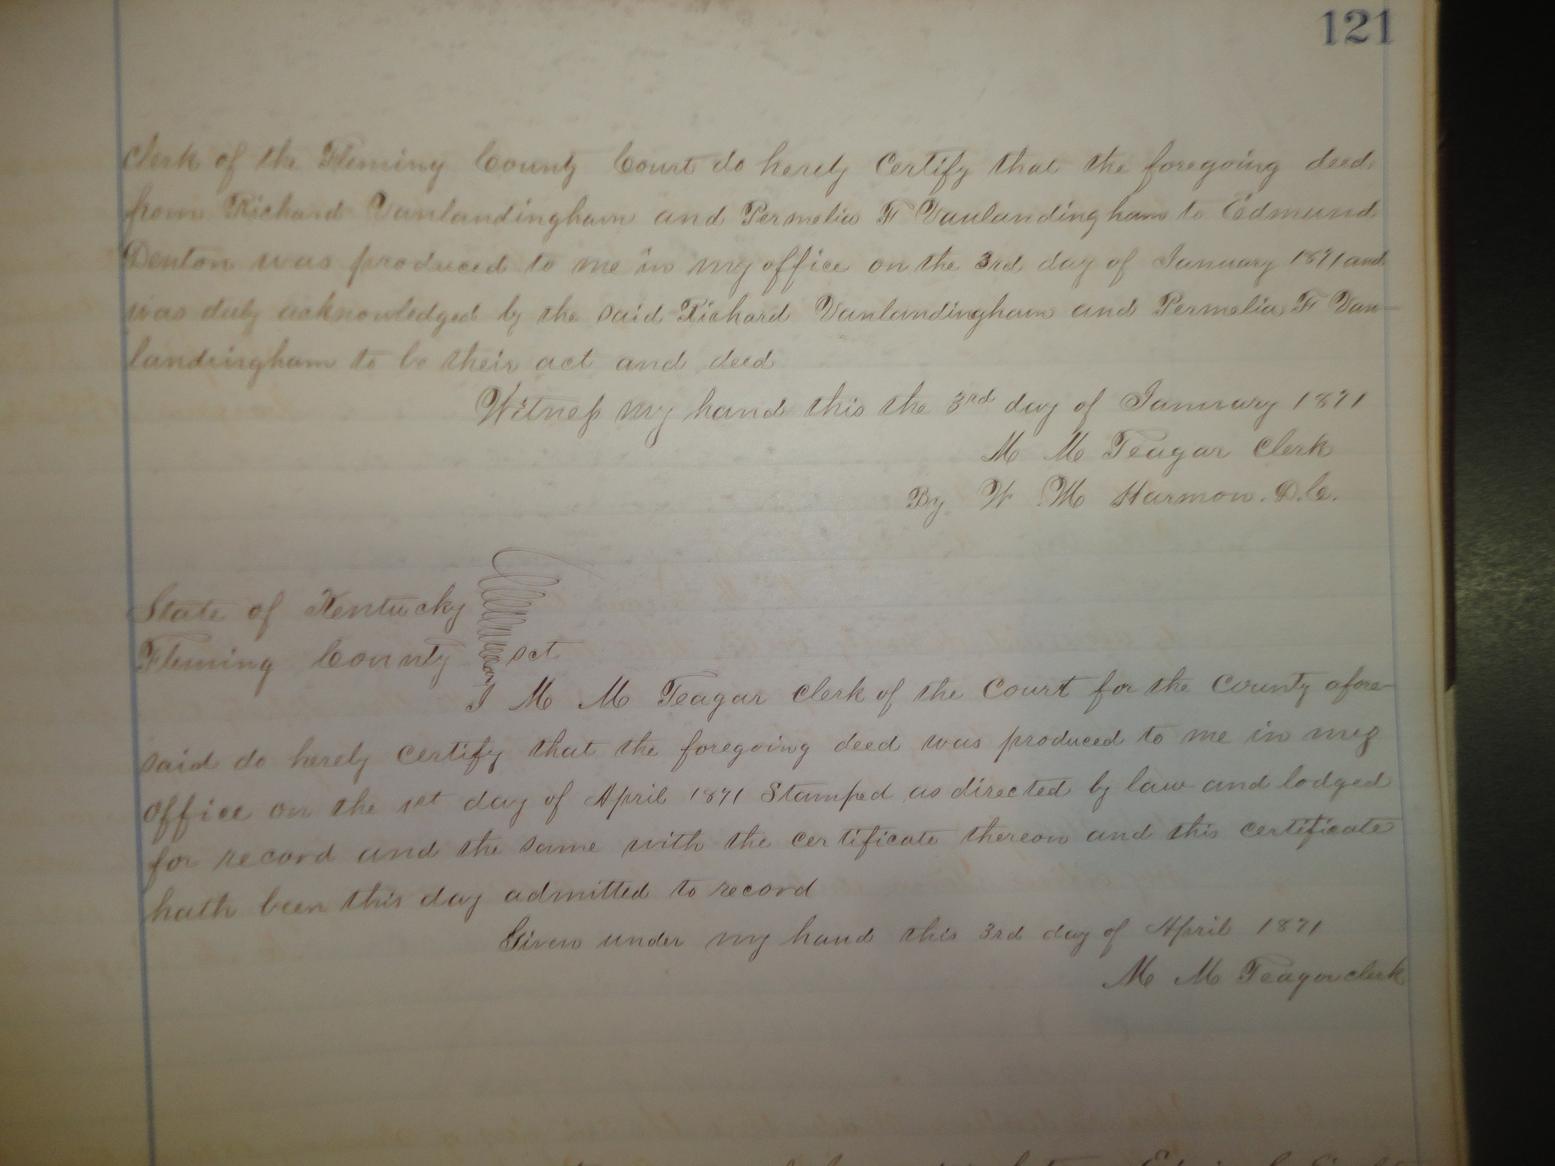 121
Clerk of the Fleming County Court do herely Certify that the foregoing deed
from Richard Vanlandingham and Permelia F Vanlandingham to Edmund
Denton was produced to me in my office on the 3rd day of January 1871 and
was duly acknowledged by the said Richard Vanlandingham and Permelia F Van-
landingham to be their act and deed
Witness my hand this the 3rd day of January 1871
M M Teagar Clerk
By W M Harmon. D.C.
State of Kentucky
Fleming County sct
I M M Teagar Clerk of the Court for the County afore-
said do herely certify that the foregoing deed was produced to me in my
office on the 1st day of April 1871 Stamped as directed by law and lodged
for record and the same with the certificate thereon and this certificate
hath been this day admitted to record
Given under my hand this 3rd day of April 1871
M M Teagar clerk